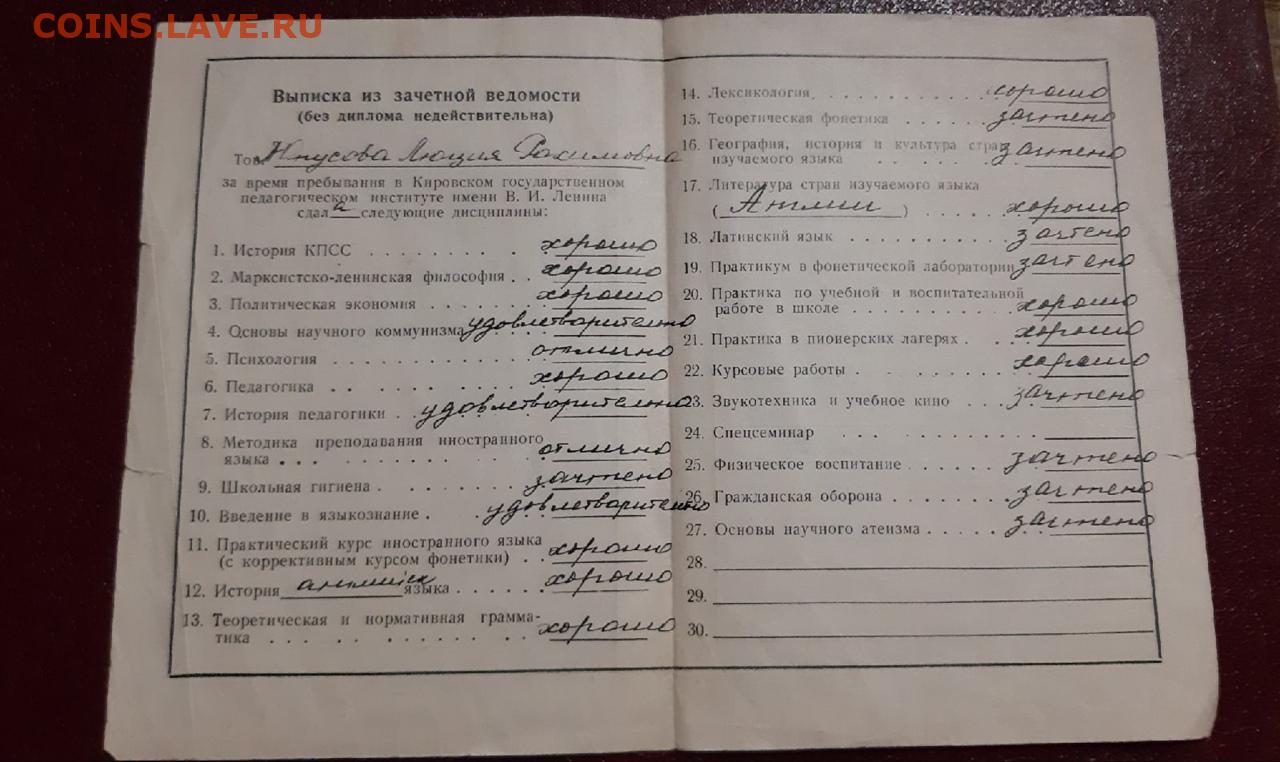 COINS.LAVE.RU
Выписка из зачетной ведомости
(без диплома недействительна)
Тов. Юнусова Люция Рахимовна
за время пребывания в Кировском государственном
педагогическом институте имени В. И. Ленина
сдала следующие дисциплины:
1. История КПСС . . . . . . . . . хорошо
2. Марксистско-ленинская философия . . хорошо
3. Политическая экономия . . . . . . хорошо
4. Основы научного коммунизма удовлетворительно
5. Психология . . . . . . . . . . отлично
6. Педагогика . . . . . . . . . . хорошо
7. История педагогики . . удовлетворительно
8. Методика преподавания иностранного
языка . . . . . . . . . . отлично
9. Школьная гигиена . . . . . . . зачтено
10. Введение в языкознание . . удовлетворительно
11. Практический курс иностранного языка
(с коррективным курсом фонетики) . . хорошо
12. История английск языка . . . . . . хорошо
13. Теоретическая и нормативная грамма-
тика . . . . . . . . . . хорошо
14. Лексикология . . . . . . . . . хорошо
15. Теоретическая фонетика . . . . . зачтено
16. География, история и культура стран
изучаемого языка . . . . . зачтено
17. Литература стран изучаемого языка
( Англии ) . . . . . хорошо
18. Латинский язык . . . . . . . . зачтено
19. Практикум в фонетической лаборатории зачтено
20. Практика по учебной и воспитательной
работе в школе . . . . . . . . хорошо
21. Практика в пионерских лагерях . . . хорошо
22. Курсовые работы . . . . . . . хорошо
23. Звукотехника и учебное кино . . . зачтено
24. Спецсеминар . . . . . . .
25. Физическое воспитание . . . . . зачтено
26. Гражданская оборона . . . . . . зачтено
27. Основы научного атеизма . . . . . зачтено
28.
29.
30.